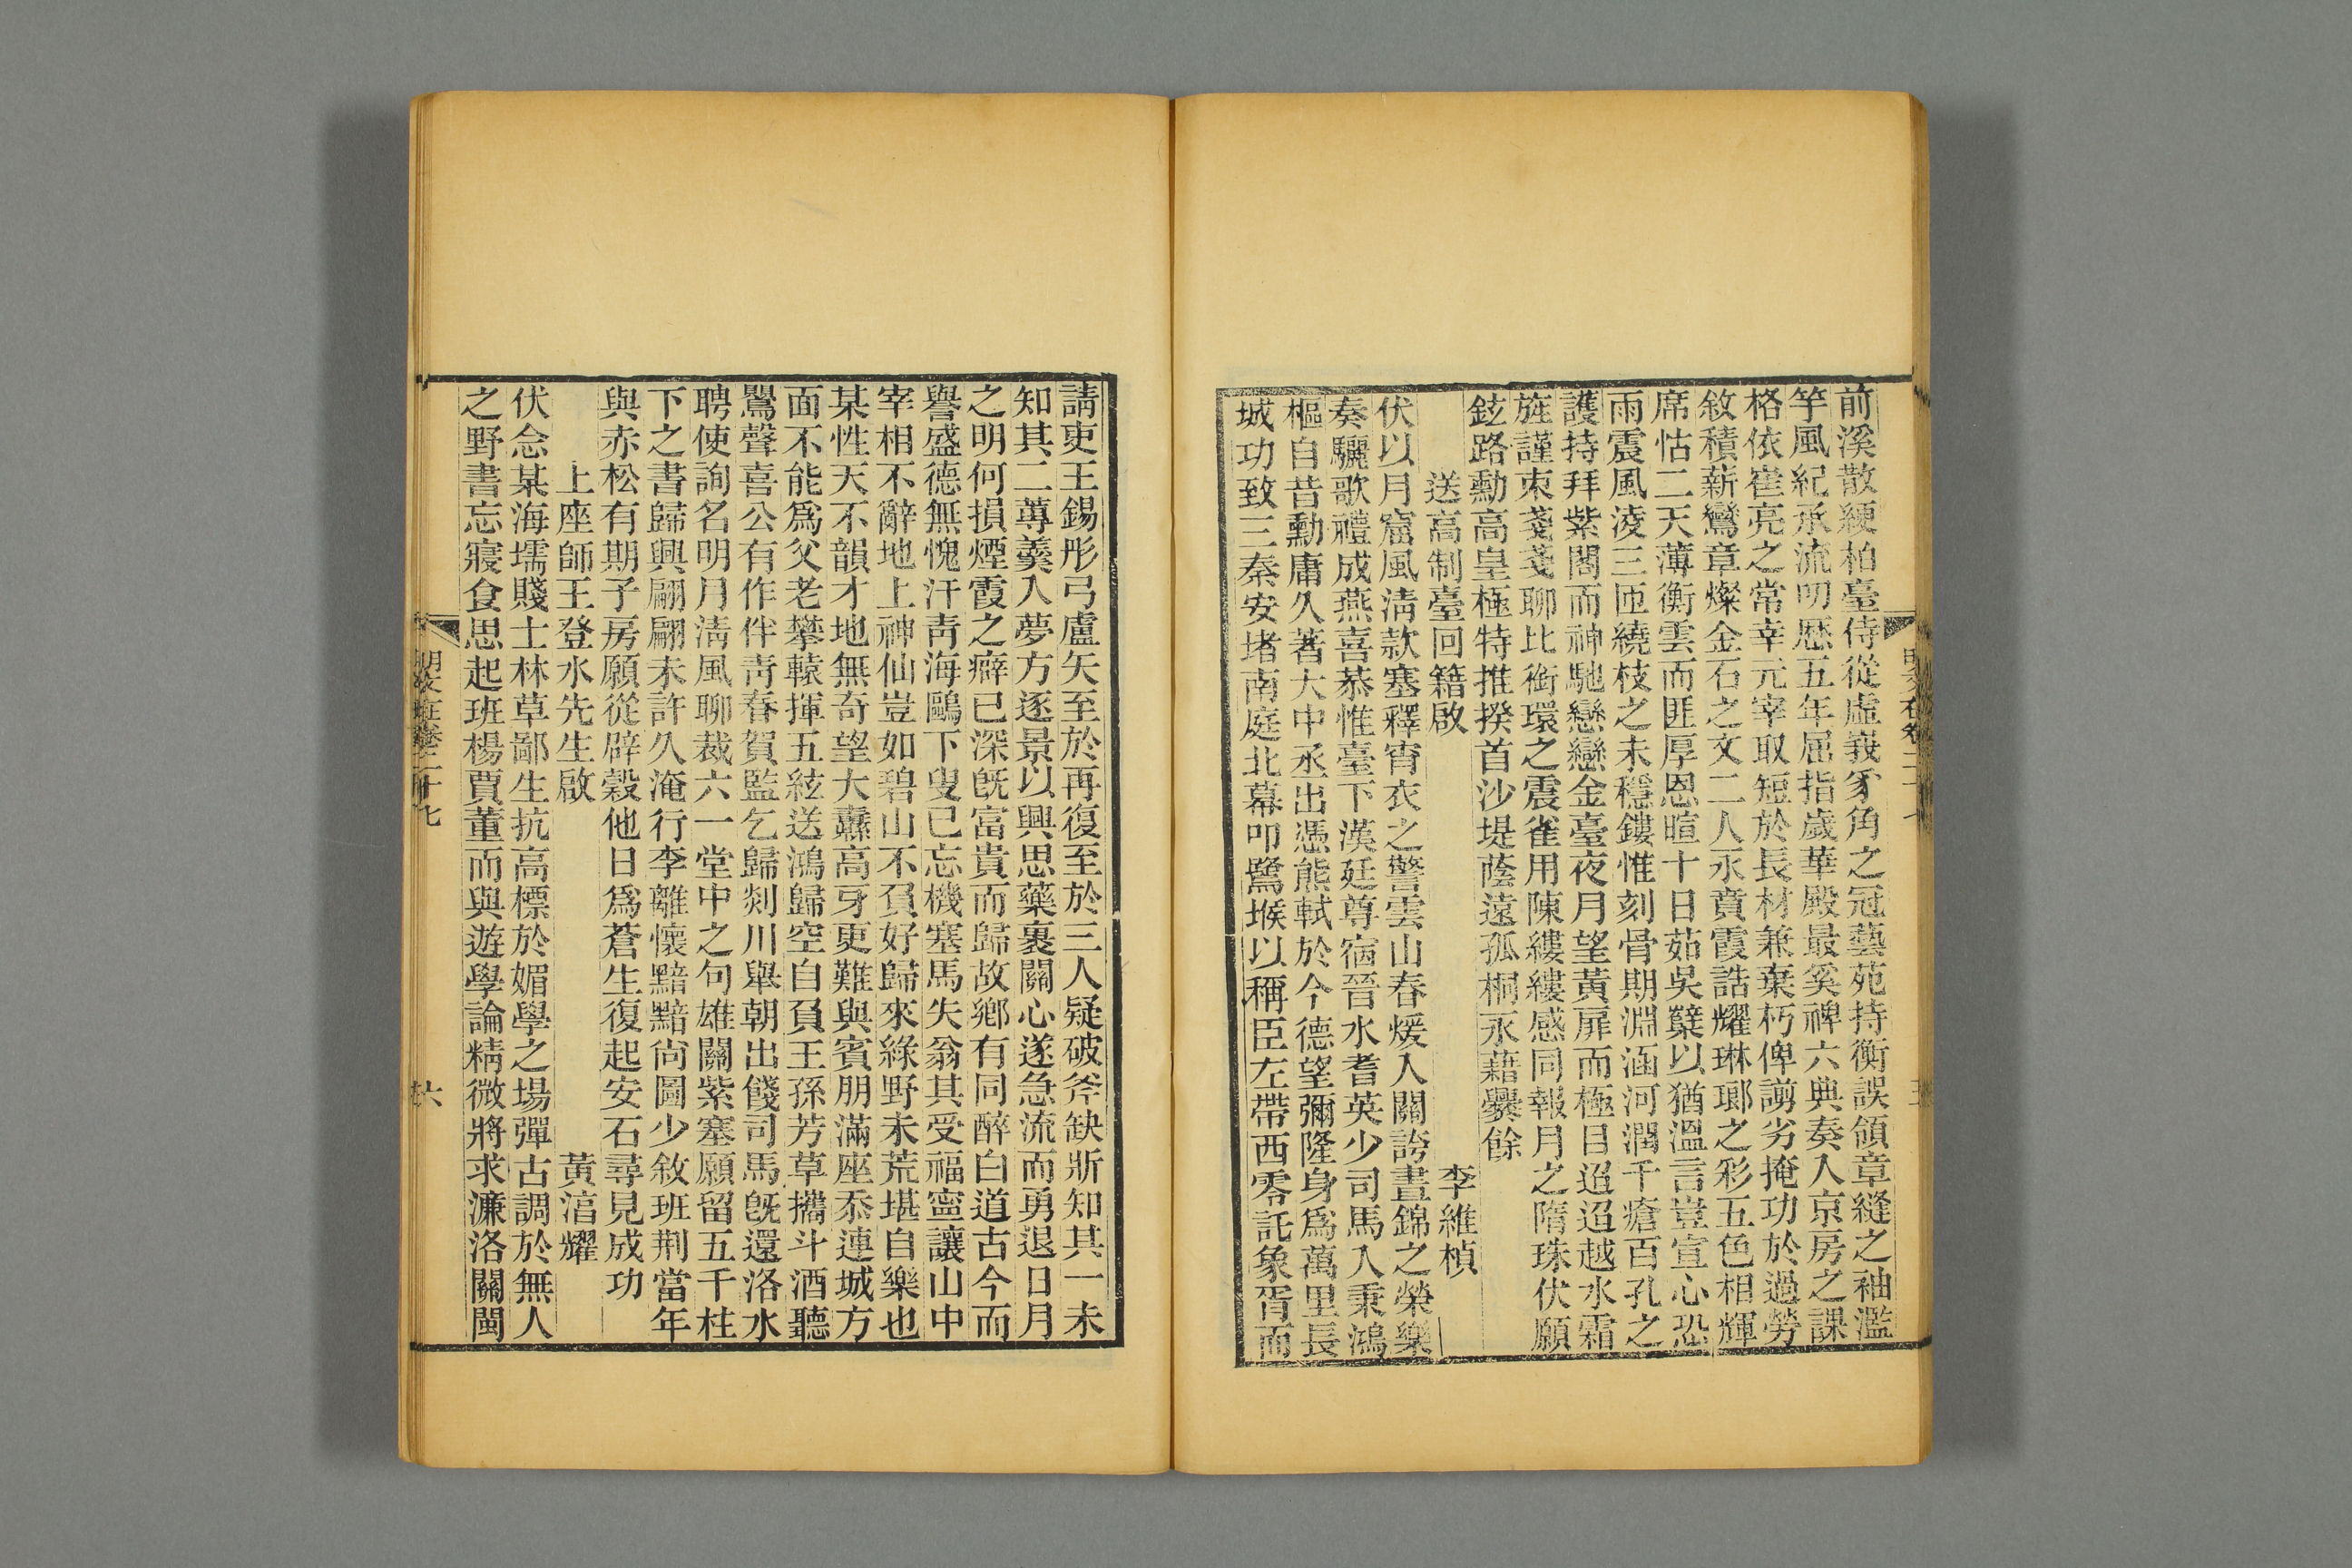 前溪散綆柏臺侍從虛峩豸角之冠藝苑持衡誤領章縫之袖濫
竽風紀承流叨歷五年屈指歲華殿最奚禆六典奏入京房之課
格依崔亮之常幸元宰取短於長材兼棄朽俾謭劣掩功於過勞
敘積薪鸞章燦金石之文二人永賁霞誥耀琳瑯之彩五色相輝
席怙二天薄衡雲而匪厚恩暄十日茹吳糵以猶溫言豈宣心恐
雨震風淩三匝繞枝之未穩鏤惟刻骨期淵涵河潤千瘡百孔之
護持拜紫閣而神馳戀戀金臺夜月望黃扉而極目迢迢越水霜
旌謹朿戔戔聊比銜環之震雀用陳縷縷感同報月之隋珠伏願
鉉路勳高皇極特推揆首沙堤蔭遠孤桐永藉爨餘
送高制臺回籍啟
李維楨
伏以月窟風淸款塞釋宵衣之警雲山春煖入關誇晝錦之榮樂
奏驪歌禮成燕喜恭惟臺下漢廷尊宿晉水耆英少司馬入秉鴻
樞自昔勳庸久著大中丞出憑熊軾於今德望彌隆身爲萬里長
城功致三秦安堵南庭北幕叩鷺堠以稱臣左帶西零託象胥而
請吏王錫彤弓盧矢至於再復至於三人疑破斧缺斨知其一未
知其二蓴羹入夢方逐景以興思藥裹關心遂急流而勇退日月
之明何損煙霞之癖已深旣富貴而歸故鄉有同醉白道古今而
譽盛德無愧汗靑海鷗下叟已忘機塞馬失翁其受福寍讓山中
宰相不辭地上神仙豈如碧山不負好歸來綠野未荒堪自樂也
某性天不韻才地無奇望大纛高牙更難與賓朋滿座忝連城方
面不能爲父老攀轅揮五絃送鴻歸空自負王孫芳草攜斗酒聽
鸎聲喜公有作伴靑春賀監乞歸剡川舉朝出餞司馬旣還洛水
聘使詢名明月淸風聊裁六一堂中之句雄關紫塞願留五千柱
下之書歸興翩翩未許久淹行李離懷黯黯尙圖少敘班荆當年
與赤松有期子房願從辟穀他日爲蒼生復起安石尋見成功
上座師王登水先生啟
黃湻耀
伏念某海壖賤士林草鄙生抗高標於媚學之場彈古調於無人
之野書忘寢食思起班楊賈董而與遊學論精微將求濂洛關閩
明文在卷二十七
六